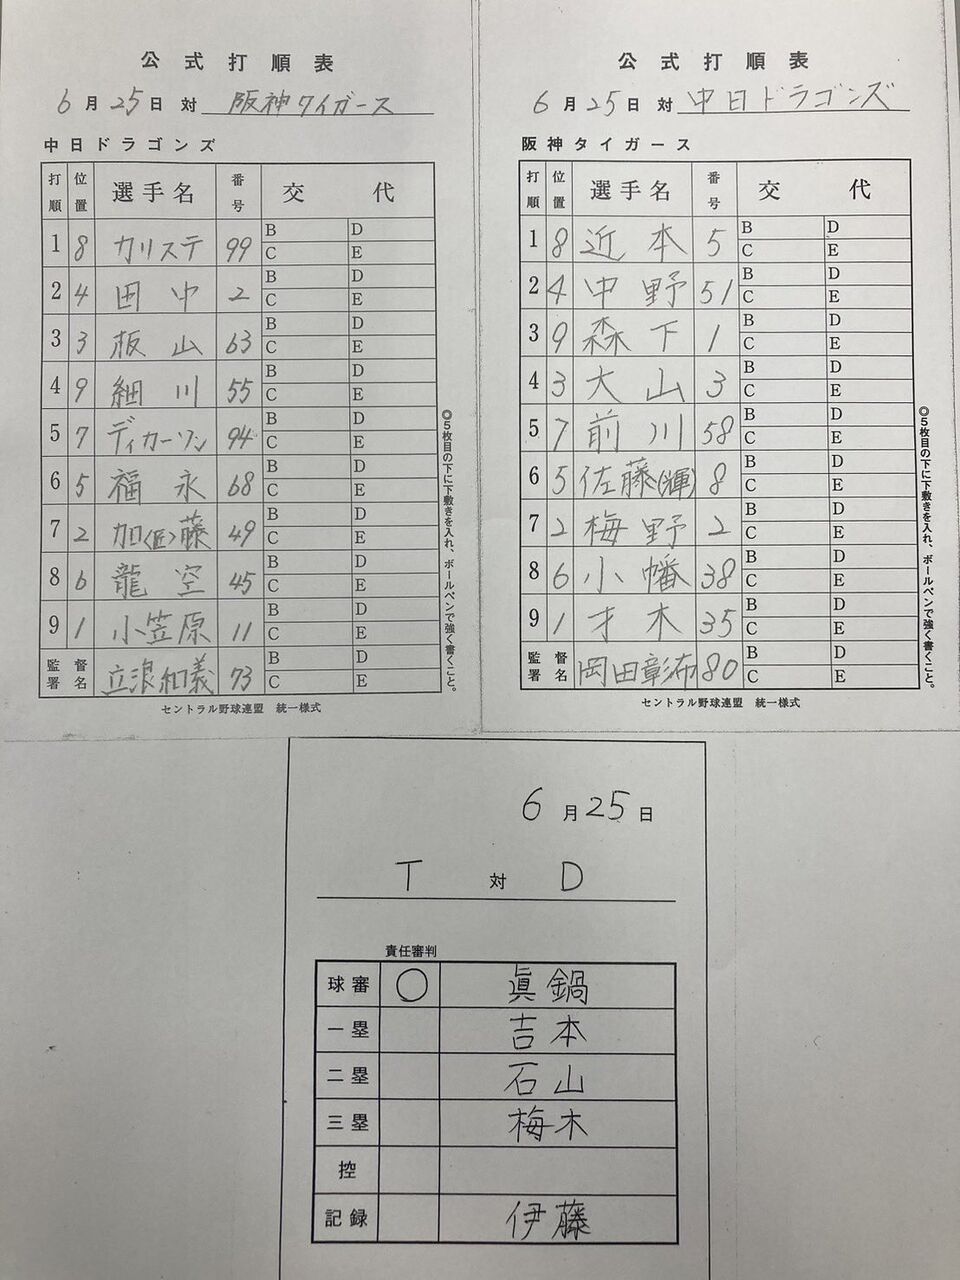 公式打順表
6月25日 対 阪神タイガース
中日ドラゴンズ
打順 位置 選手名 番号 交代
1 8 カリステ 99 B D C E
2 4 田中 2 B D C E
3 3 板山 63 B D C E
4 9 細川 55 B D C E
5 7 ディカーソン 94 B D C E
6 5 福永 68 B D C E
7 2 加(匠)藤 49 B D C E
8 6 龍空 45 B D C E
9 1 小笠原 11 B D C E
監督署名 立浪和義 73 B D C E
セントラル野球連盟 統一様式
◎5枚目の下に下敷きを入れ、ボールペンで強く書くこと。
公式打順表
6月25日 対 中日ドラゴンズ
阪神タイガース
打順 位置 選手名 番号 交代
1 8 近本 5 B D C E
2 4 中野 51 B D C E
3 9 森下 1 B D C E
4 3 大山 3 B D C E
5 7 前川 58 B D C E
6 5 佐藤(輝) 8 B D C E
7 2 梅野 2 B D C E
8 6 小幡 38 B D C E
9 1 才木 35 B D C E
監督署名 岡田彰布 80 B D C E
セントラル野球連盟 統一様式
◎5枚目の下に下敷きを入れ、ボールペンで強く書くこと。
6月25日
T 対 D
責任審判
球審 ○ 眞鍋
一塁 吉本
二塁 石山
三塁 梅木
控
記録 伊藤